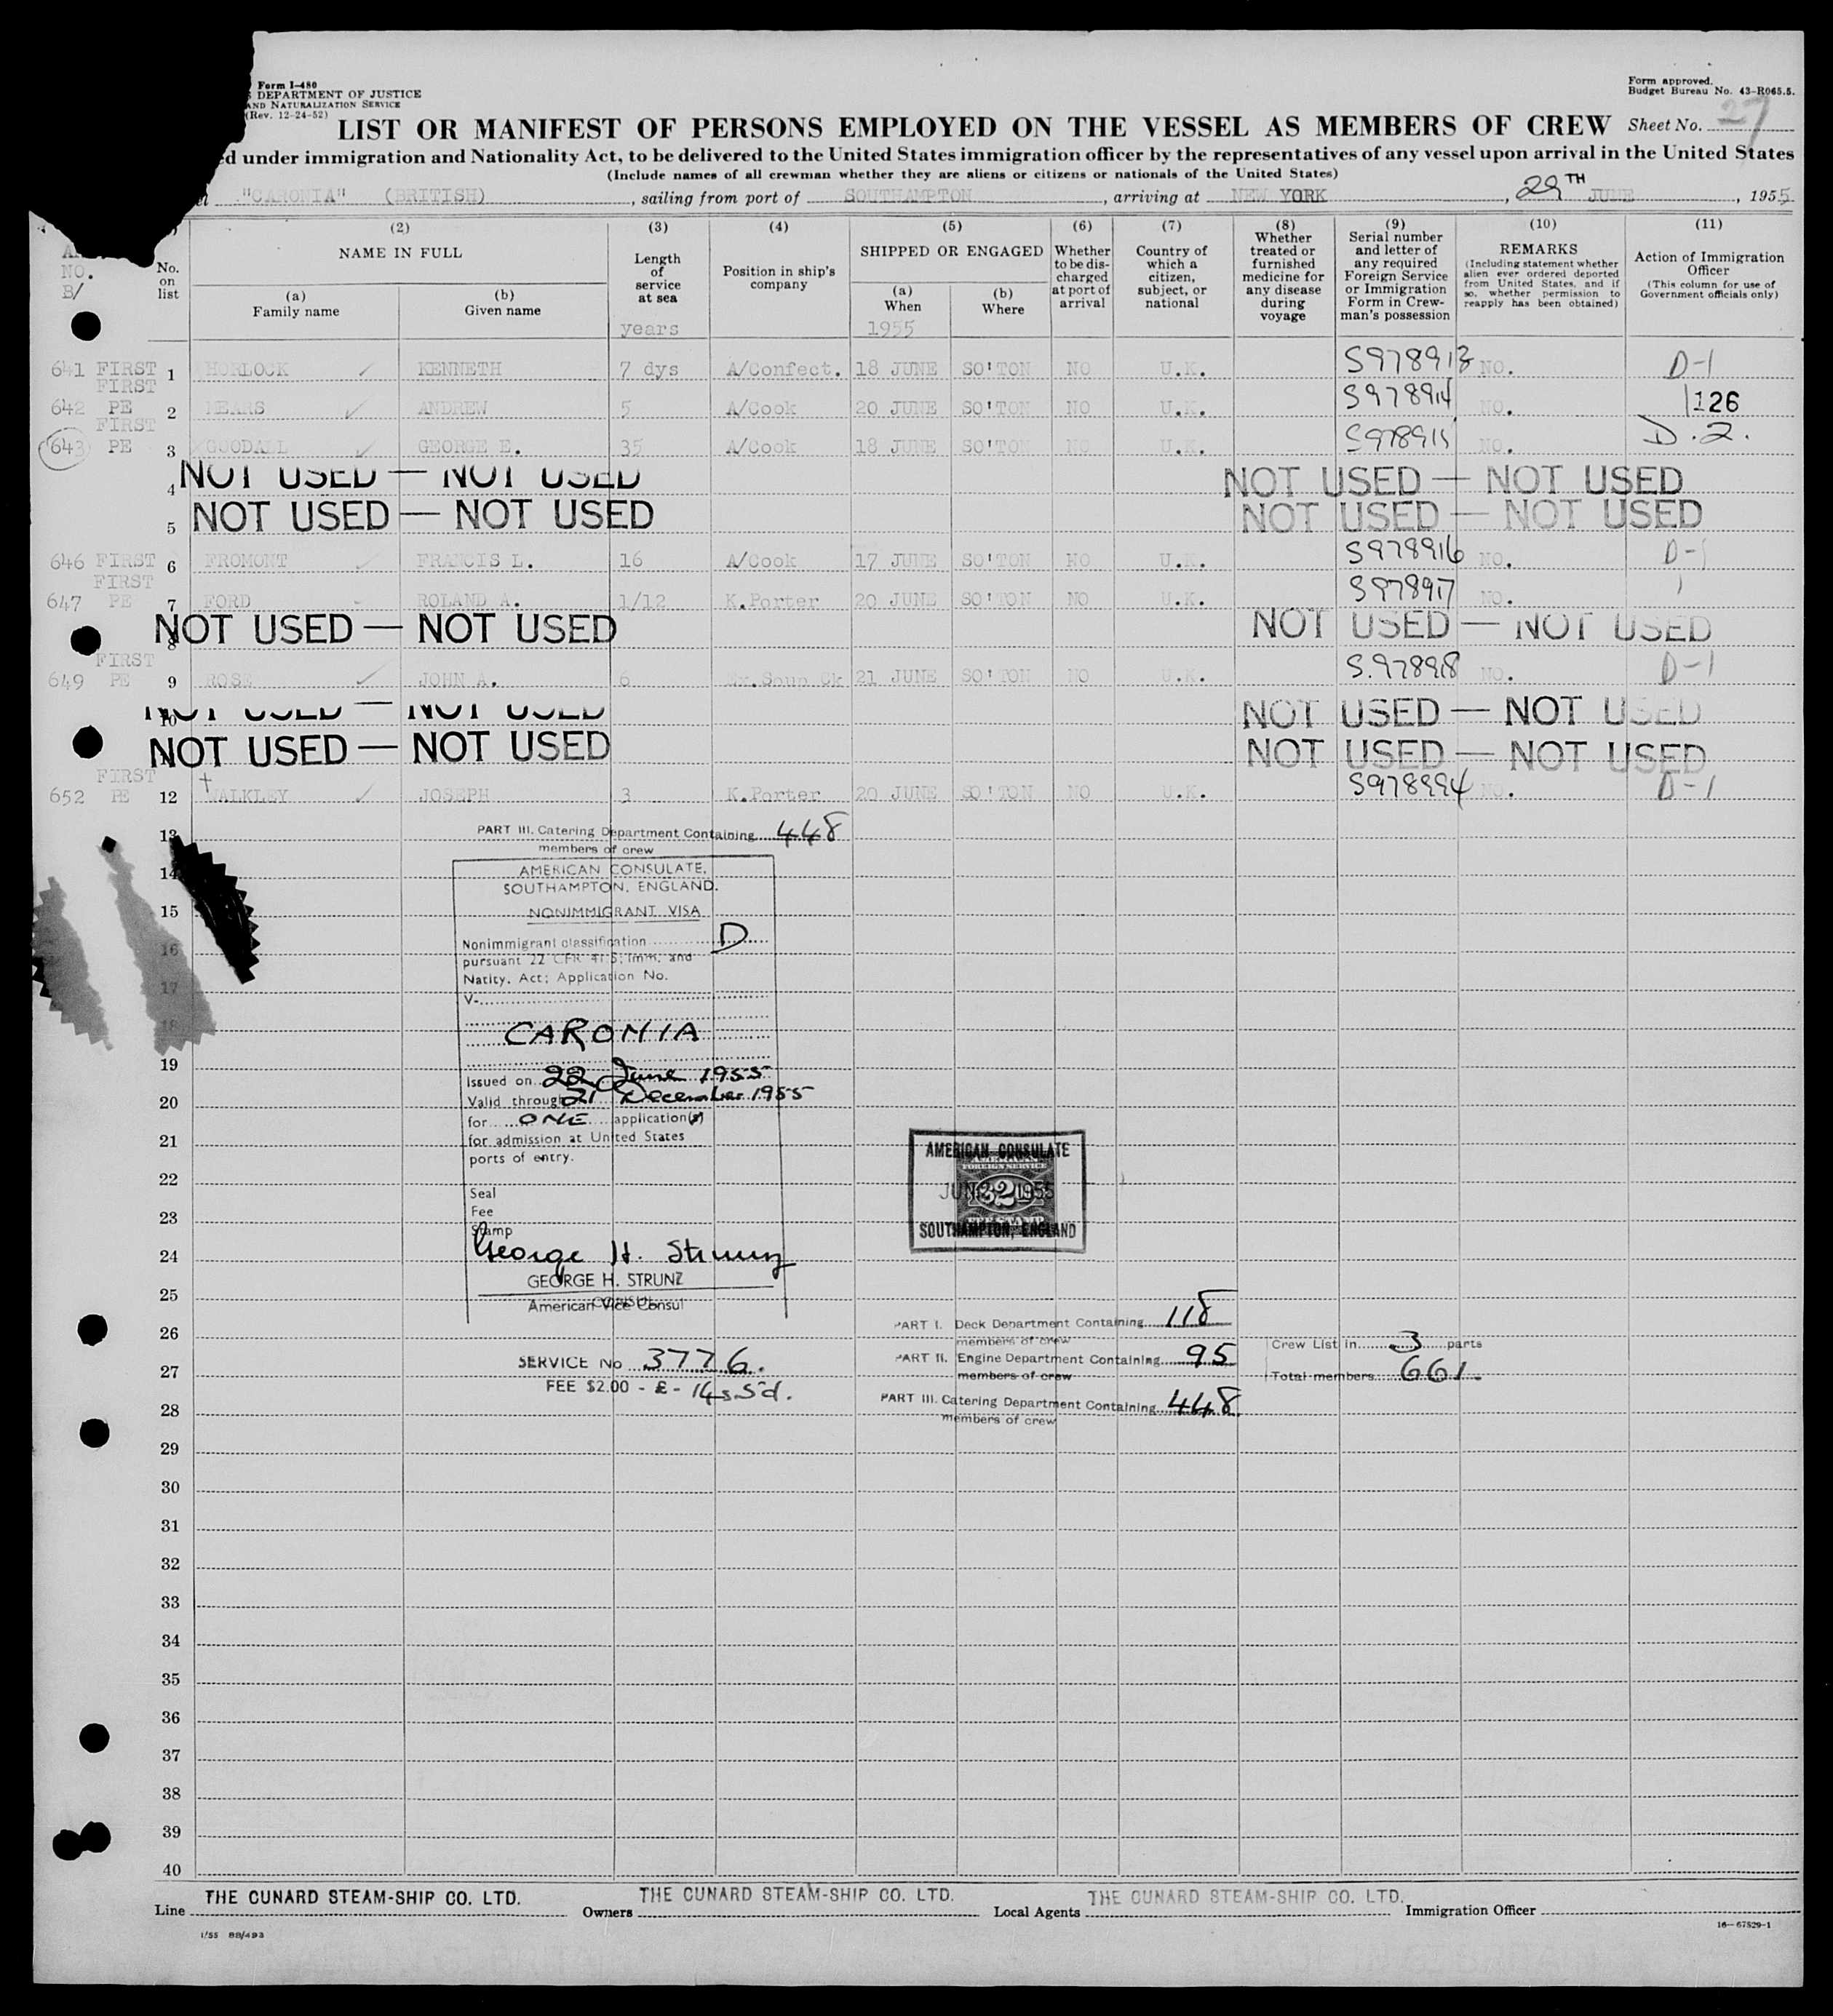 Form I-480
DEPARTMENT OF JUSTICE
AND NATURALIZATION SERVICE
(Rev. 12-24-52)
Form approved.
Budget Bureau No. 43-R065.5.
LIST OR MANIFEST OF PERSONS EMPLOYED ON THE VESSEL AS MEMBERS OF CREW Sheet No. 27
under immigration and Nationality Act, to be delivered to the United States immigration officer by the representatives of any vessel upon arrival in the United States
(Include names of all crewman whether they are aliens or citizens or nationals of the United States)
"CARONIA" (BRITISH), sailing from port of SOUTHAMPTON, arriving at NEW YORK, 29TH JUNE, 1955
NO.
B/
No. on list
(2) NAME IN FULL
(a) Family name
(b) Given name
(3) Length of service at sea
years
(4) Position in ship's company
(5) SHIPPED OR ENGAGED
(a) When
1955
(b) Where
(6) Whether to be discharged at port of arrival
(7) Country of which a citizen, subject, or national
(8) Whether treated or furnished medicine for any disease during voyage
(9) Serial number and letter of any required Foreign Service or Immigration Form in Crewman's possession
(10) REMARKS (Including statement whether alien ever ordered deported from United States, and if so, whether permission to reapply has been obtained)
(11) Action of Immigration Officer (This column for use of Government officials only)
641 FIRST 1 HORLOCK KENNETH 7 dys A/Confect. 18 JUNE SO'TON NO U.K. S978913 NO. D-1
642 FIRST PE 2 MEARS ANDREW 5 A/Cook 20 JUNE SO'TON NO U.K. S978914 NO. 126
643 FIRST PE 3 GOODALL GEORGE E. 35 A/Cook 18 JUNE SO'TON NO U.K. S978915 NO. D.2.
4 NOT USED — NOT USED NOT USED — NOT USED
5 NOT USED — NOT USED NOT USED — NOT USED
646 FIRST 6 FROMONT FRANCIS L. 16 A/Cook 17 JUNE SO'TON NO U.K. S978916 NO. D-1
647 FIRST PE 7 FORD ROLAND A. 1/12 K.Porter 20 JUNE SO'TON NO U.K. S97897 NO.
8 NOT USED — NOT USED NOT USED — NOT USED
649 FIRST PE 9 ROSE JOHN A. 6 Ex.Soup Ck 21 JUNE SO'TON NO U.K. S.978918 NO. D-1
10 NOT USED — NOT USED NOT USED — NOT USED
NOT USED — NOT USED NOT USED — NOT USED
652 FIRST PE 12 WALKLEY JOSEPH 3 K.Porter 20 JUNE SO'TON NO U.K. S978994 NO. D-1
13
PART III. Catering Department Containing 448
members of crew
14
AMERICAN CONSULATE,
SOUTHAMPTON, ENGLAND.
15
NONIMMIGRANT VISA
16
Nonimmigrant classification D
pursuant 22 CFR 41.5; Imm. and
Natity. Act; Application No.
17
V-
18
CARONIA
19
Issued on 22 June 1955
Valid through 21 December 1955
20
for ONE application(s)
21
for admission at United States
ports of entry.
22
Seal
Fee
23
Stamp
24
George H. Strunz
GEORGE H. STRUNZ
25
CONSUL
American Vice Consul
AMERICAN CONSULATE
AMERICAN
FOREIGN SERVICE
JUN 22 1955
SOUTHAMPTON, ENGLAND
26
PART I. Deck Department Containing 118
members of crew
Crew List in 3 parts
SERVICE No 3776.
PART II. Engine Department Containing 95
members of crew
Total members 661.
27
FEE $2.00 - £ - 14s 5d.
PART III. Catering Department Containing 448
members of crew
28
29
30
31
32
33
34
35
36
37
38
39
40
Line THE CUNARD STEAM-SHIP CO. LTD. Owners THE CUNARD STEAM-SHIP CO. LTD. Local Agents THE CUNARD STEAM-SHIP CO. LTD. Immigration Officer
1/55 88/493
16—67529-1